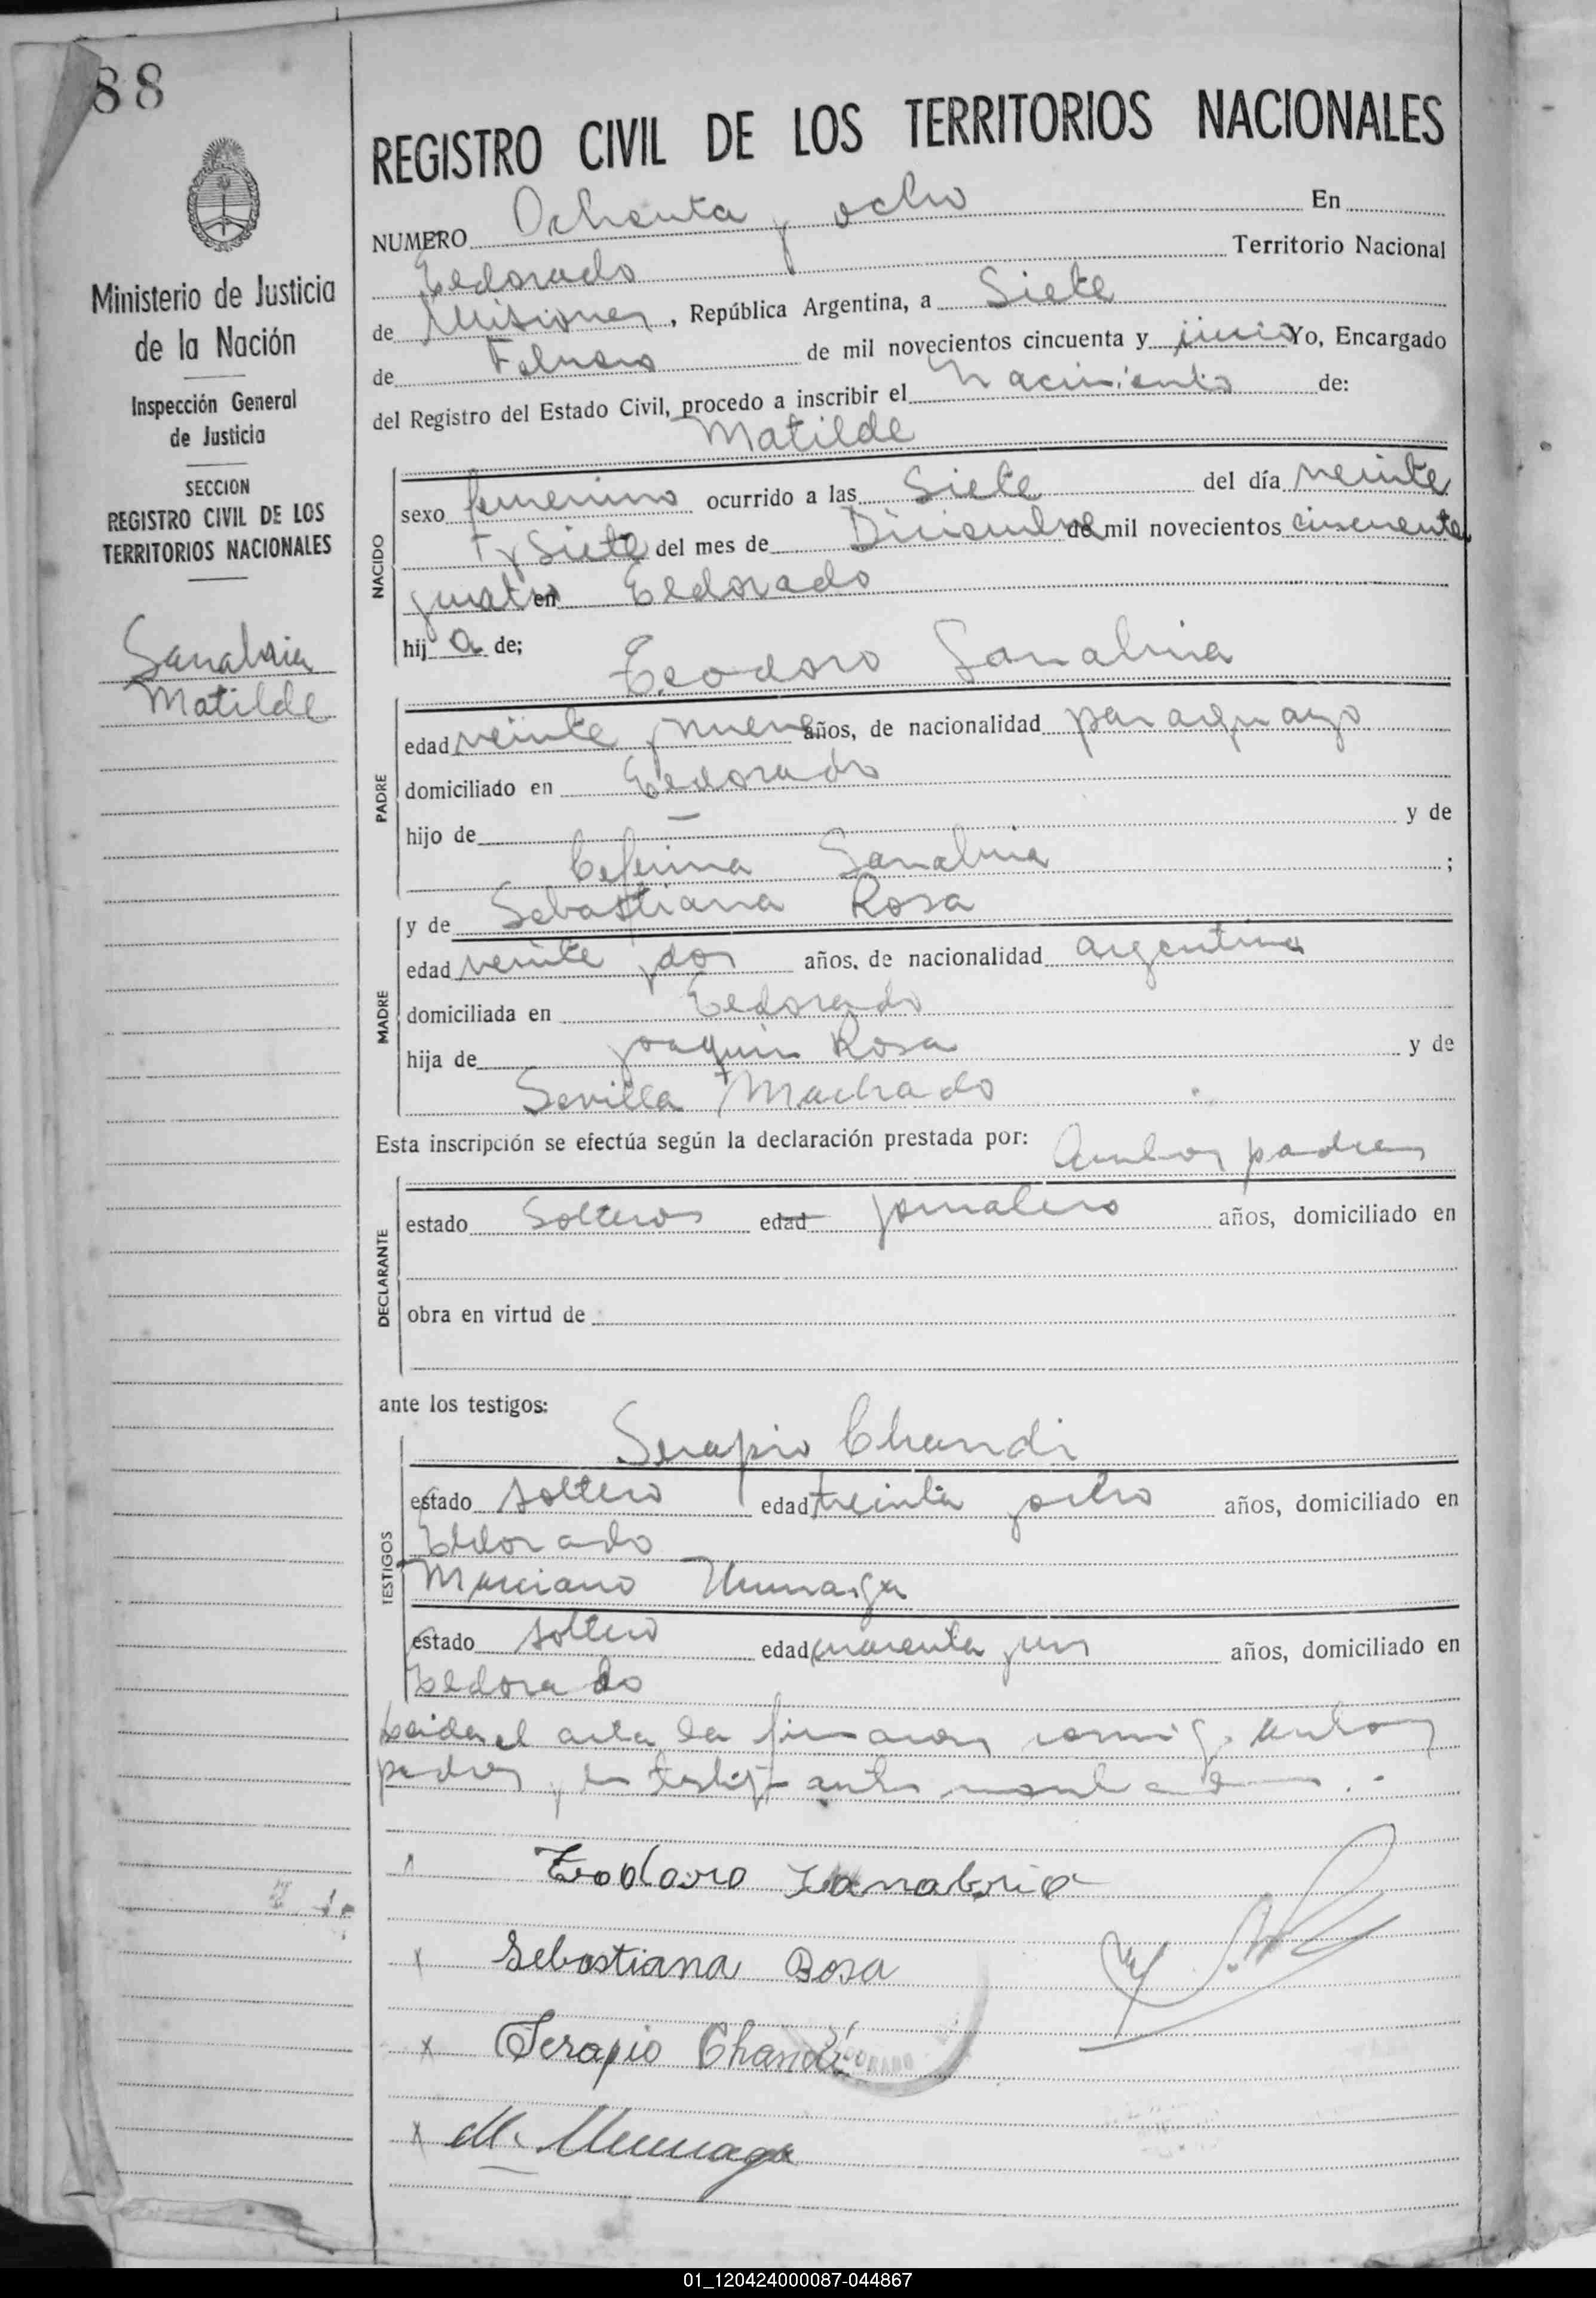 88
REGISTRO CIVIL DE LOS TERRITORIOS NACIONALES
NUMERO Ochenta y ocho En
Eldorado Territorio Nacional
de Misiones, República Argentina, a Siete
de Febrero de mil novecientos cincuenta y cinco Yo, Encargado
del Registro del Estado Civil, procedo a inscribir el nacimiento de:
Matilde
Ministerio de Justicia
de la Nación
Inspección General
de Justicia
SECCION
REGISTRO CIVIL DE LOS
TERRITORIOS NACIONALES
Sanabria
Matilde
NACIDO
sexo femenino ocurrido a las Siete del día veinte
y Siete del mes de Diciembre de mil novecientos cincuenta
y cuatro en Eldorado
hija de;
Teodoro Sanabria
PADRE
edad veinte y nueve años, de nacionalidad paraguayo
domiciliado en Eldorado
hijo de — y de
Ceferina Sanabria ;
y de Sebastiana Rosa
MADRE
edad veinte y dos años, de nacionalidad argentina
domiciliada en Eldorado
hija de Joaquin Rosa y de
Sevilla Machado
Esta inscripción se efectúa según la declaración prestada por: Ambos padres
DECLARANTE
estado Solteros edad jornalero años, domiciliado en
obra en virtud de
ante los testigos:
Serapio Chandi
TESTIGOS
estado soltero edad treinta y ocho años, domiciliado en
Eldorado
Marciano
estado soltero edad cuarenta y un años, domiciliado en
Eldorado
Leida el acta la firmaron conmigo ambos
padres y los testigos antes
Teodoro Sanabria
x Sebastiana Rosa
x Serapio Chandi
x M.
01_120424000087-044867